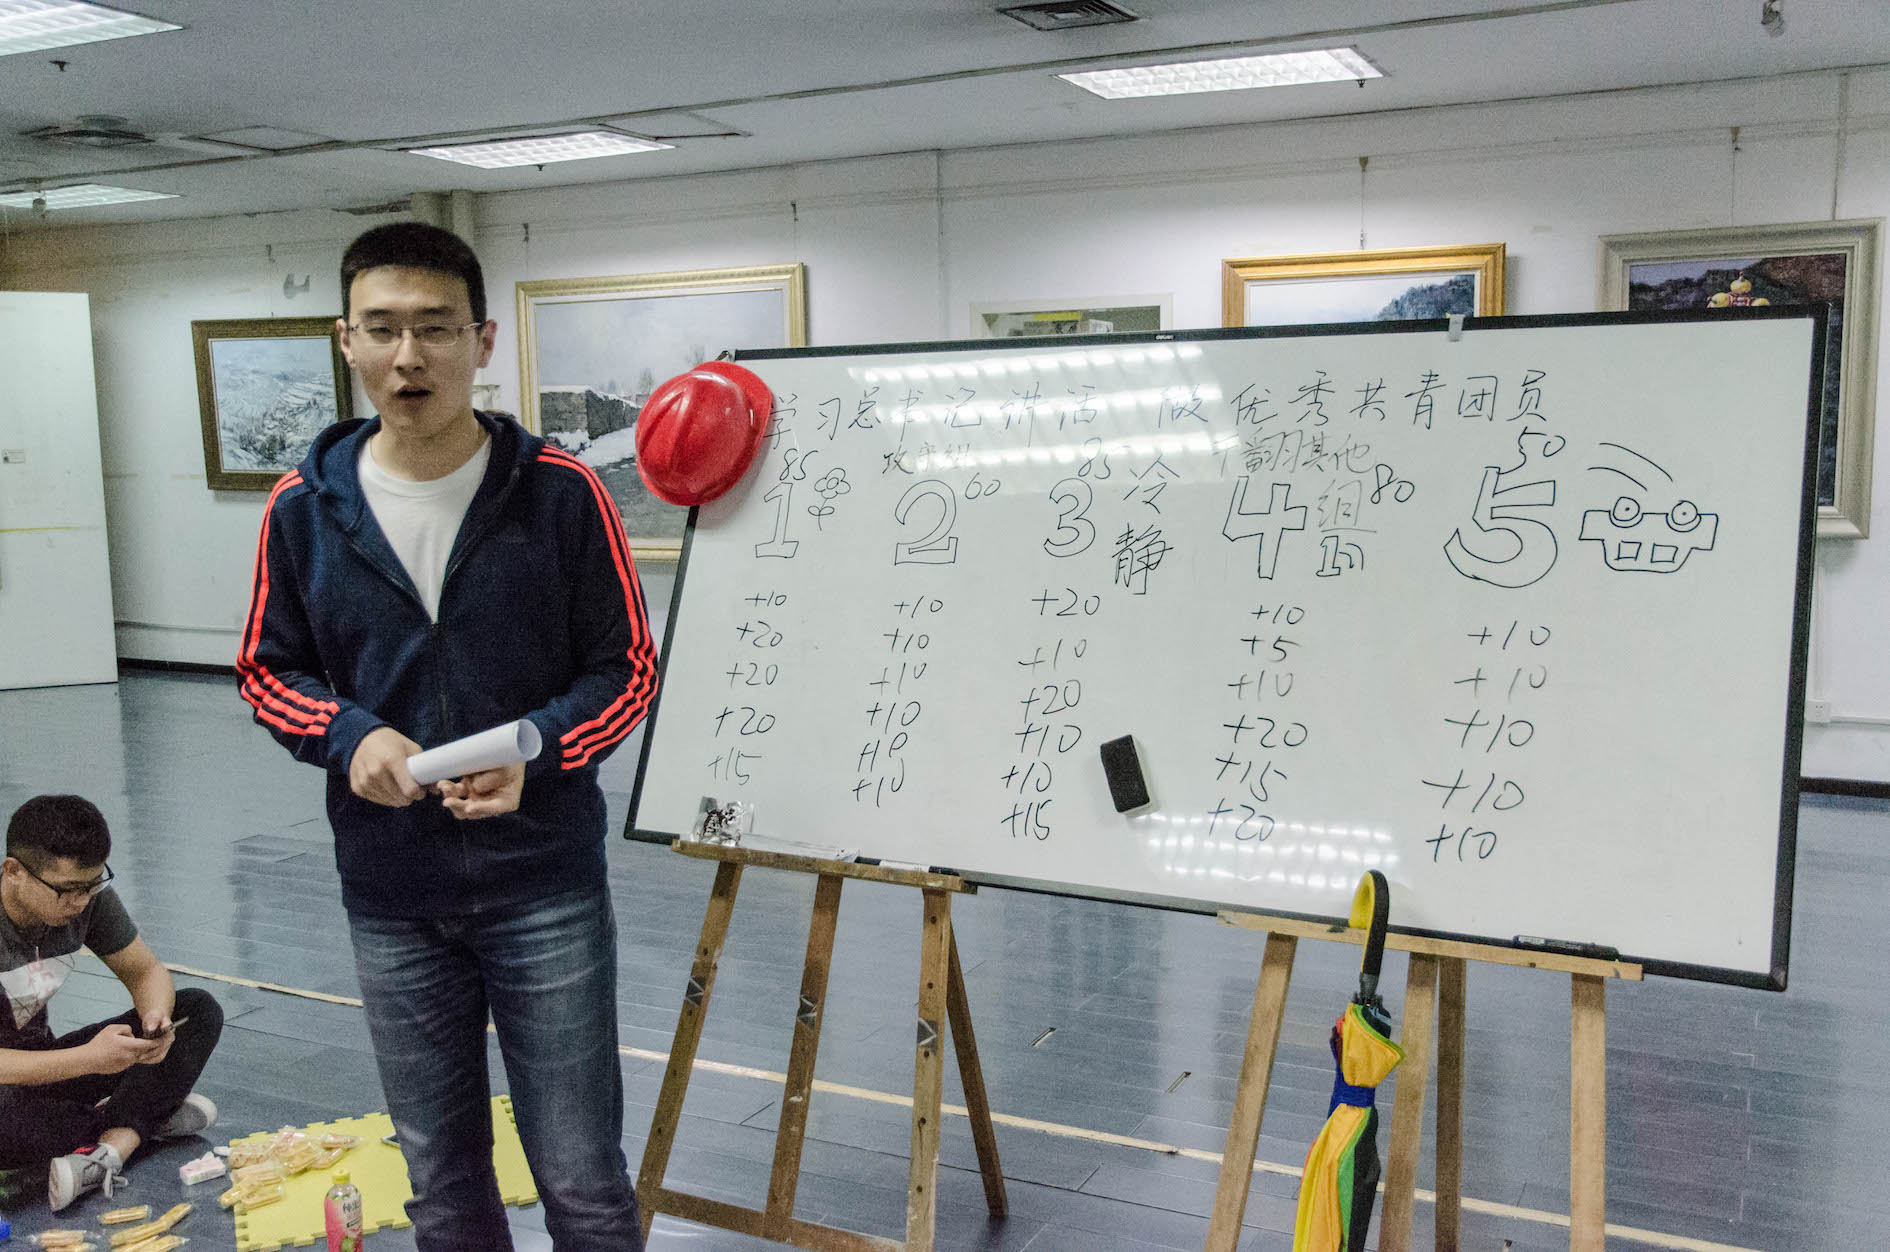 学习总书记讲话 做优秀共青团员
85 攻克组 60 85 冷静 干翻其他组 80 50
1 2 3 4 in 5
+10 +10 +20 +10 +10
+20 +10 +10 +5 +10
+20 +10 +20 +10 +10
+20 +10 +10 +20 +10
+15 +10 +10 +15 +10
+10 +15 +20